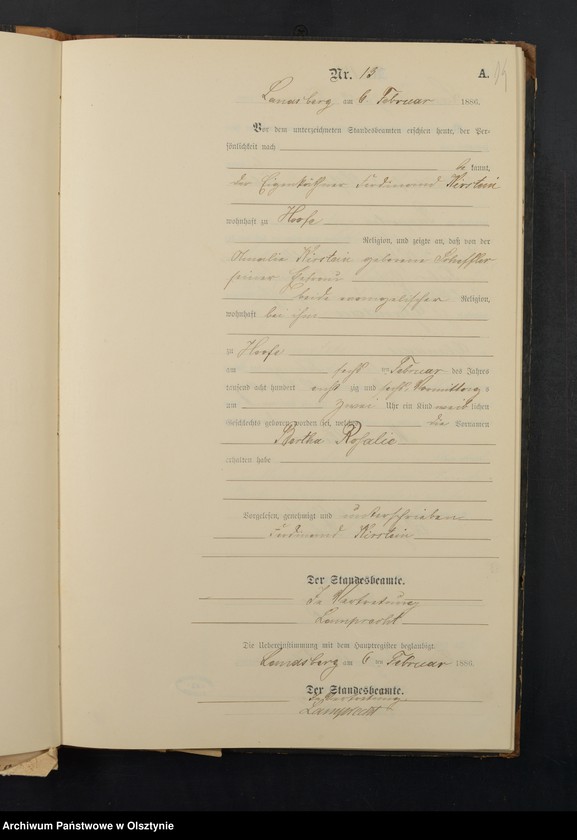 Nr. 13
A.
Landsberg am 6. Februar 1886.
Vor dem unterzeichneten Standesbeamten erschien heute, der Per-
sönlichkeit nach
be kannt,
der Eigenkäthner Ferdinand Kirstein
wohnhaft zu Hoofe
Religion, und zeigte an, daß von der
Amalie Kirstein geborene Scheffler
seiner Ehefrau
beide evangelischer Religion,
wohnhaft bei ihm
zu Hoofe
am sechs ten Februar des Jahres
tausend acht hundert acht zig und sechs, Vormittags
um zwei Uhr ein Kind weib lichen
Geschlechts geboren worden sei, welches die Vornamen
Bertha Rosalie
erhalten habe
Vorgelesen, genehmigt und unterschrieben
Ferdinand Kirstein
Der Standesbeamte.
In Vertretung
Lamprecht
Die Uebereinstimmung mit dem Hauptregister beglaubigt
Landsberg am 6 ten Februar 1886.
Der Standesbeamte.
In Vertretung
Lamprecht
Archiwum Państwowe w Olsztynie